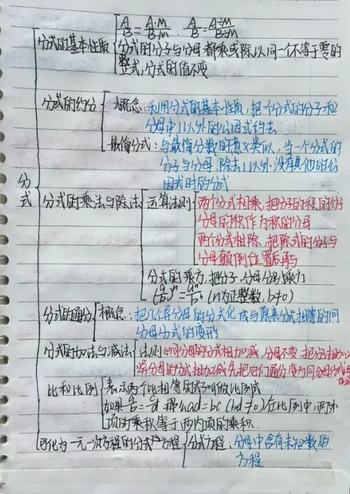 A/B = A·M/B·M , A/B = A÷M/B÷M
分式的基本性质
分式的分子与分母都乘或除以同一个不等于零的
整式,分式的值不变
分式的约分
概念:利用分式的基本性质,把一个分式的分子和
分母中1以外的公因式约去
最简分式:与最简分数的意义类似,当一个分式的
分子与分母,除去1以外,没有其他的公
因式时的分式
分式
分式的乘法与除法
运算法则
两个分式相乘,把分子的积的分子
分母的积作为积的分母
两个分式相除,把除式的分子与
分母颠倒位置后再与
分式的乘方,把分子、分母分别乘方
(n为正整数,b≠0)
分式的通分
概念:把几个异分母的分式化成与原来分式相等的同
分母分式的变形
分式的加法与减法
法则:同分母的分式相加减,分母不变,把分子相加减
异分母的分式相加减,先把它们通分变为同分母分式
比和比例
表示两个比相等的式子叫做比例式
如果 a/b = c/d 那么ad=bc (bd≠0) 在比例中,两外
项的乘积等于两内项的乘积.
可化为一元一次方程的分式方程
分式方程:分母中含有未知数的
方程